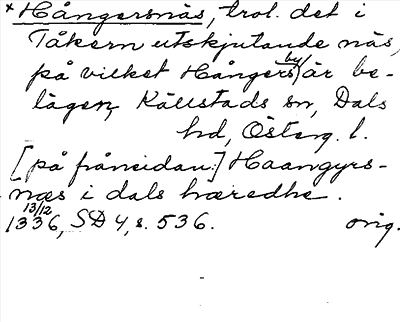 × Hångersnäs, trol. det i
Tåkern utskjutande näs,
på vilket Hångers by är be-
lägen, Källstads sn, Dals
hd, Österg. l.
[på frånsidan:] Haangyrs-
næs i dals hæredhe.
13/12 1336, SD 4, s. 536. orig.